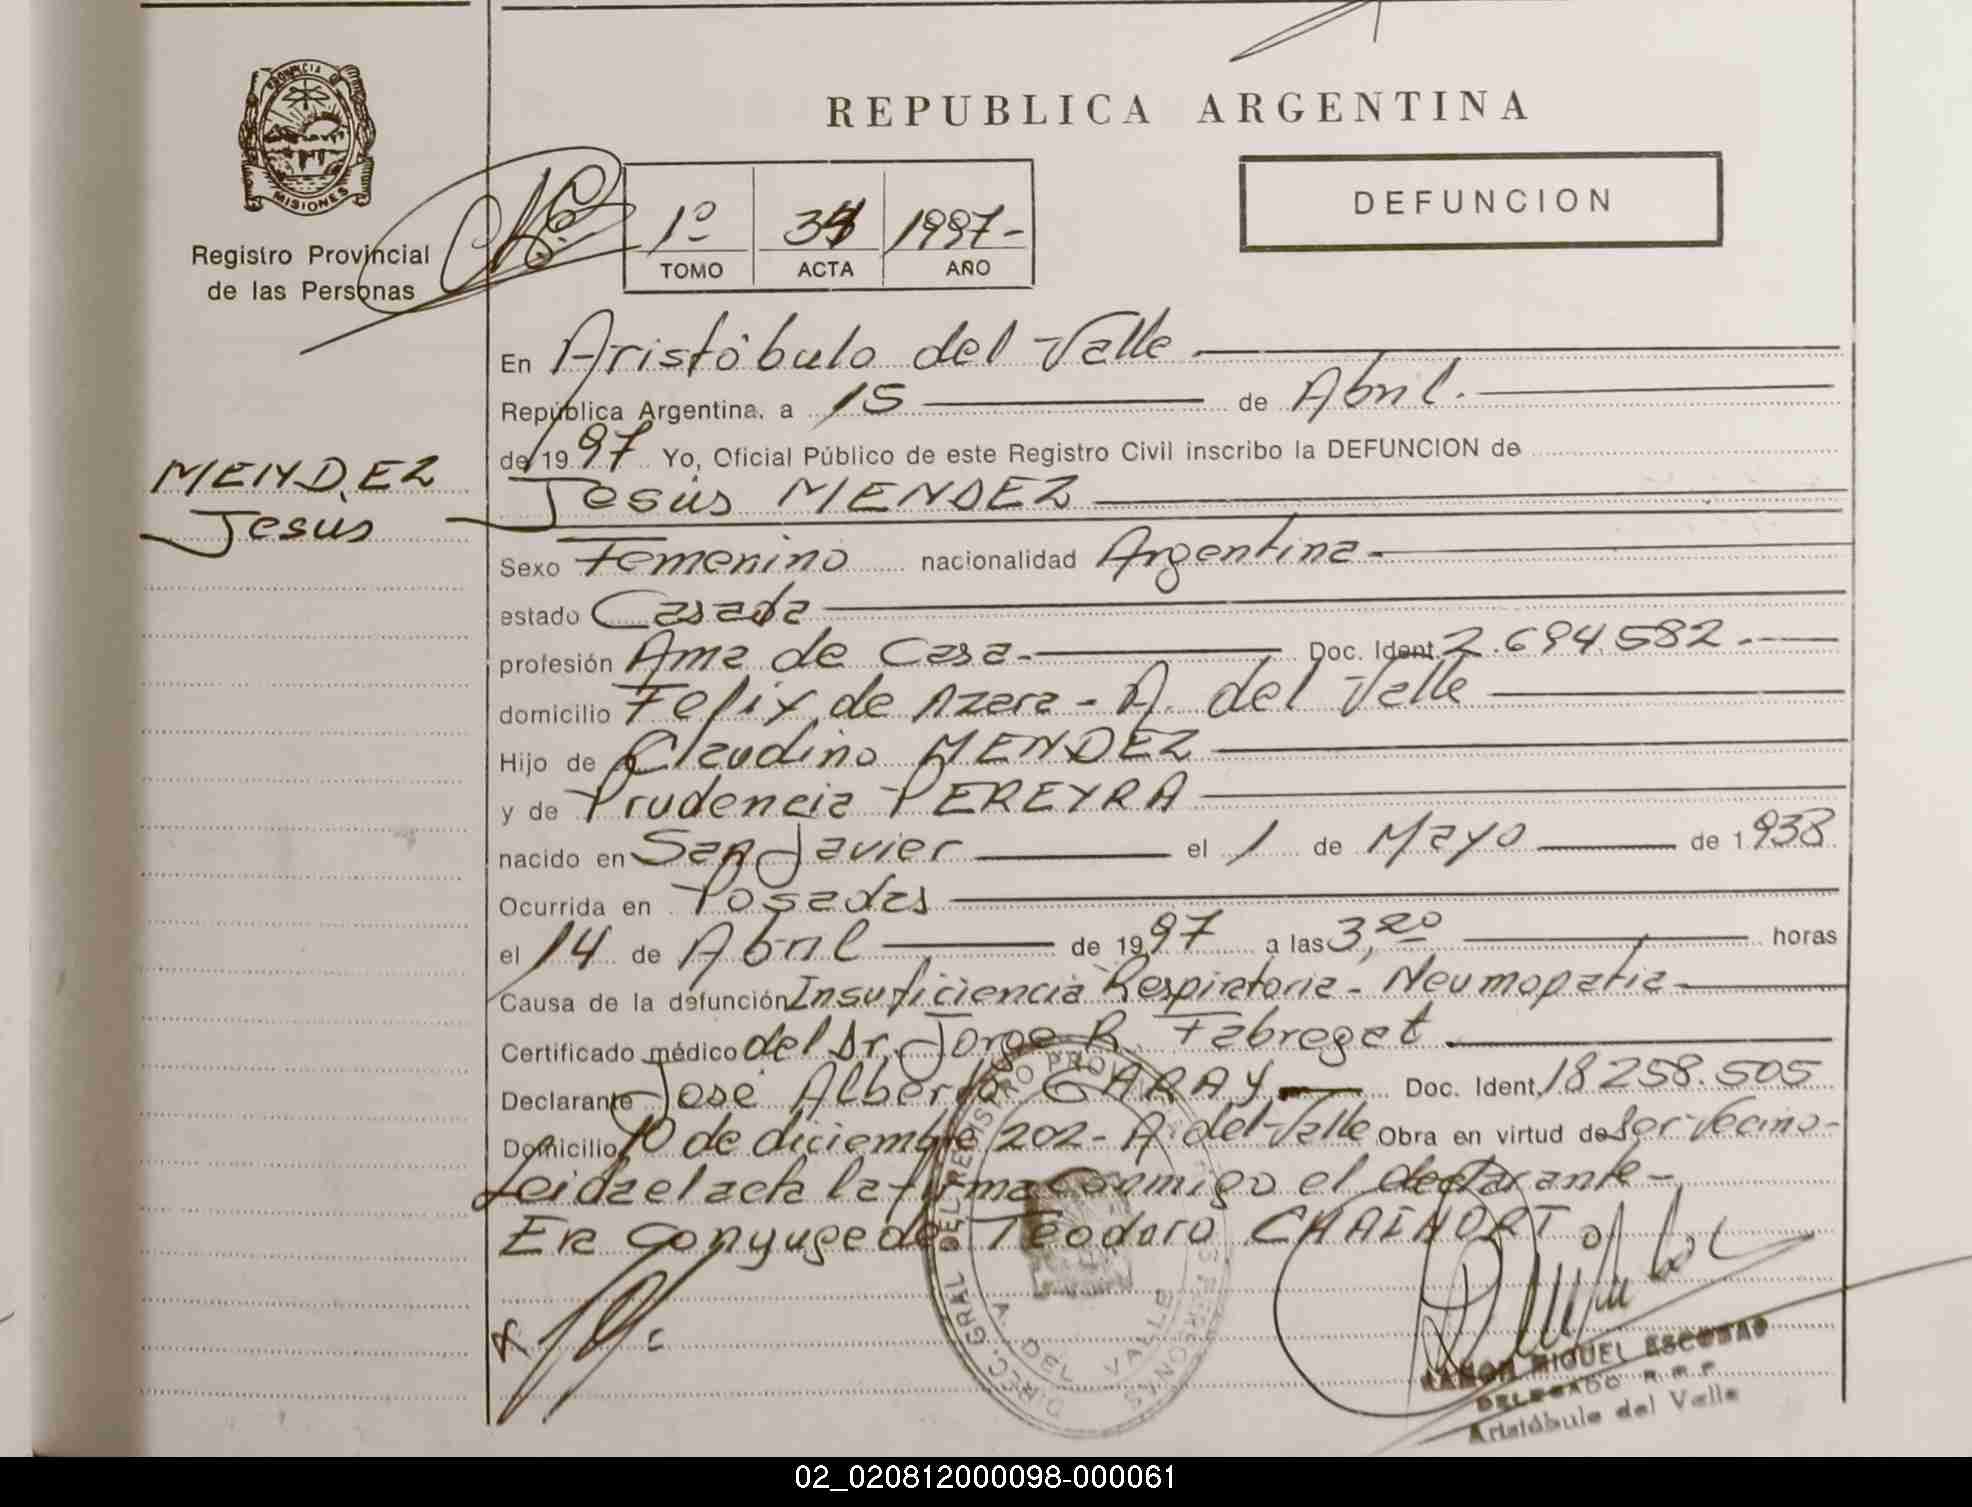 PROVINCIA DE
MISIONES
Registro Provincial
de las Personas
REPUBLICA ARGENTINA
DEFUNCION
1º 34 1997-
TOMO ACTA AÑO
MENDEZ
Jesús
En Aristóbulo del Valle
República Argentina, a 15 de Abril.
de 1997 Yo, Oficial Público de este Registro Civil inscribo la DEFUNCION de
Jesús MENDEZ
Sexo Femenino nacionalidad Argentina-
estado Casada
profesión Ama de Casa- Doc. Ident. 2.694.582.-
domicilio Felix de Azara - A. del Valle
Hijo de Claudino MENDEZ
y de Prudencia PEREYRA
nacido en San Javier el 1 de Mayo de 1938
Ocurrida en Posadas
el 14 de Abril de 1997 a las 3,20 horas
Causa de la defunción Insuficiencia Respiratoria - Neumopatia
Certificado médico del Dr. Jorge R. Fabregat
Declarante José Alberto GARAY Doc. Ident. 18258.505
Domicilio 10 de diciembre 202- A. del Valle Obra en virtud de ser Vecino-
Leida el acta la firma conmigo el declarante-
Era conyuge de Teodoro
DIREC. GRAL DEL REGISTRO PROV. PERSONAS
A. DEL VALLE
RAMON MIGUEL ESCOBAR
DELEGADO R.P.P.
Aristóbulo del Valle
02_020812000098-000061